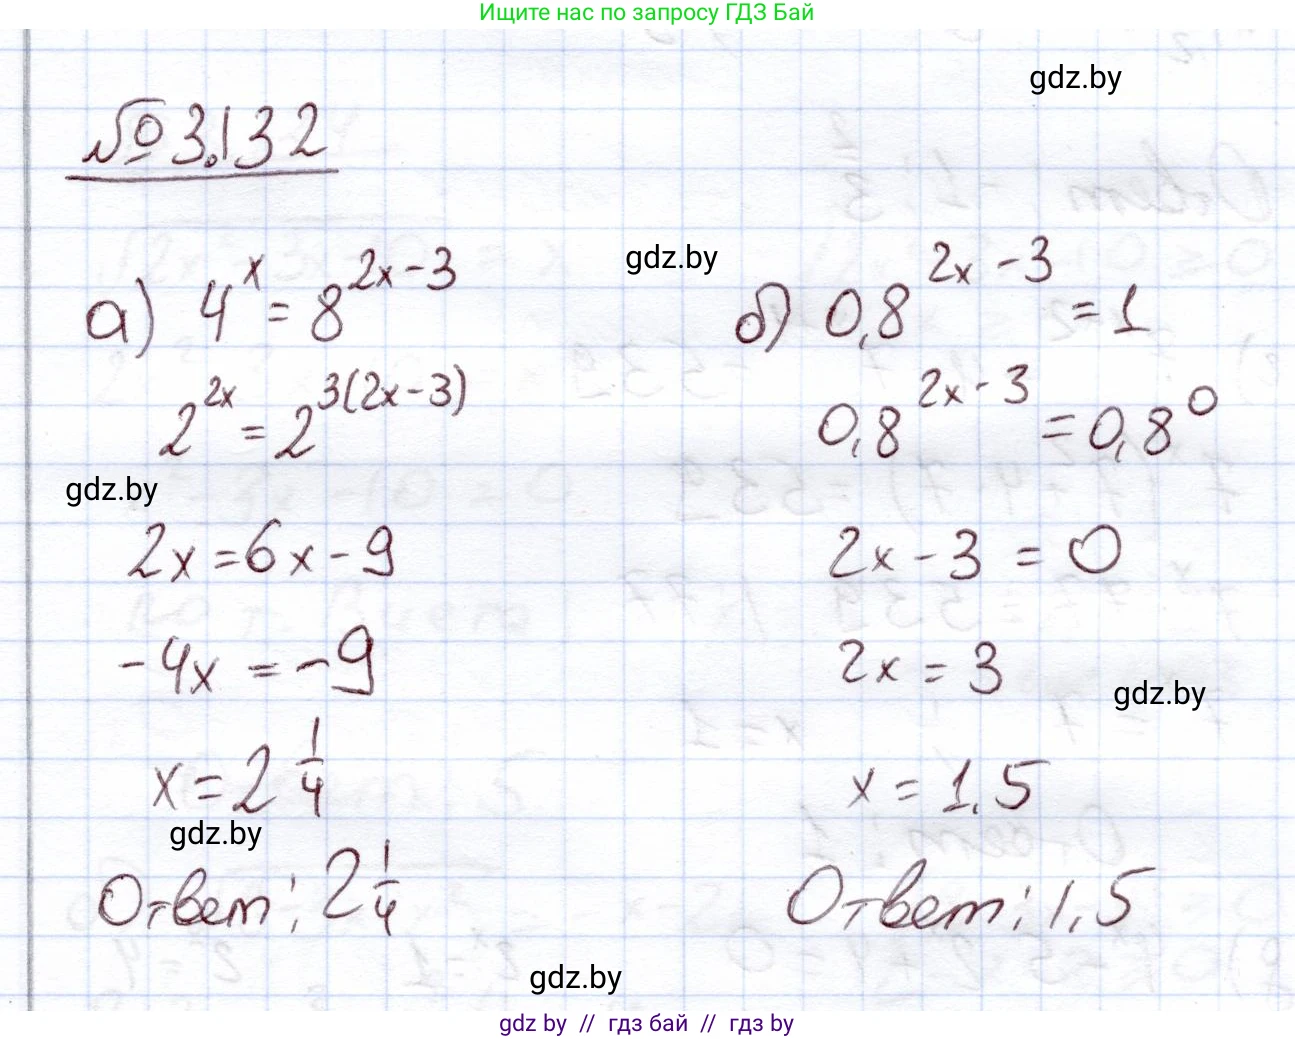 Ищите нас по запросу ГДЗ Бай
gdz.by
№3.132
gdz.by
а) 4^x = 8^{2x-3}
2^{2x} = 2^{3(2x-3)}
gdz.by
2x = 6x - 9
-4x = -9
x = 2 1/4
gdz.by
Ответ: 2 1/4
б) 0,8^{2x-3} = 1
0,8^{2x-3} = 0,8^0
2x - 3 = 0
2x = 3
gdz.by
x = 1,5
Ответ: 1,5
gdz.by
gdz by // гдз бай // гдз by